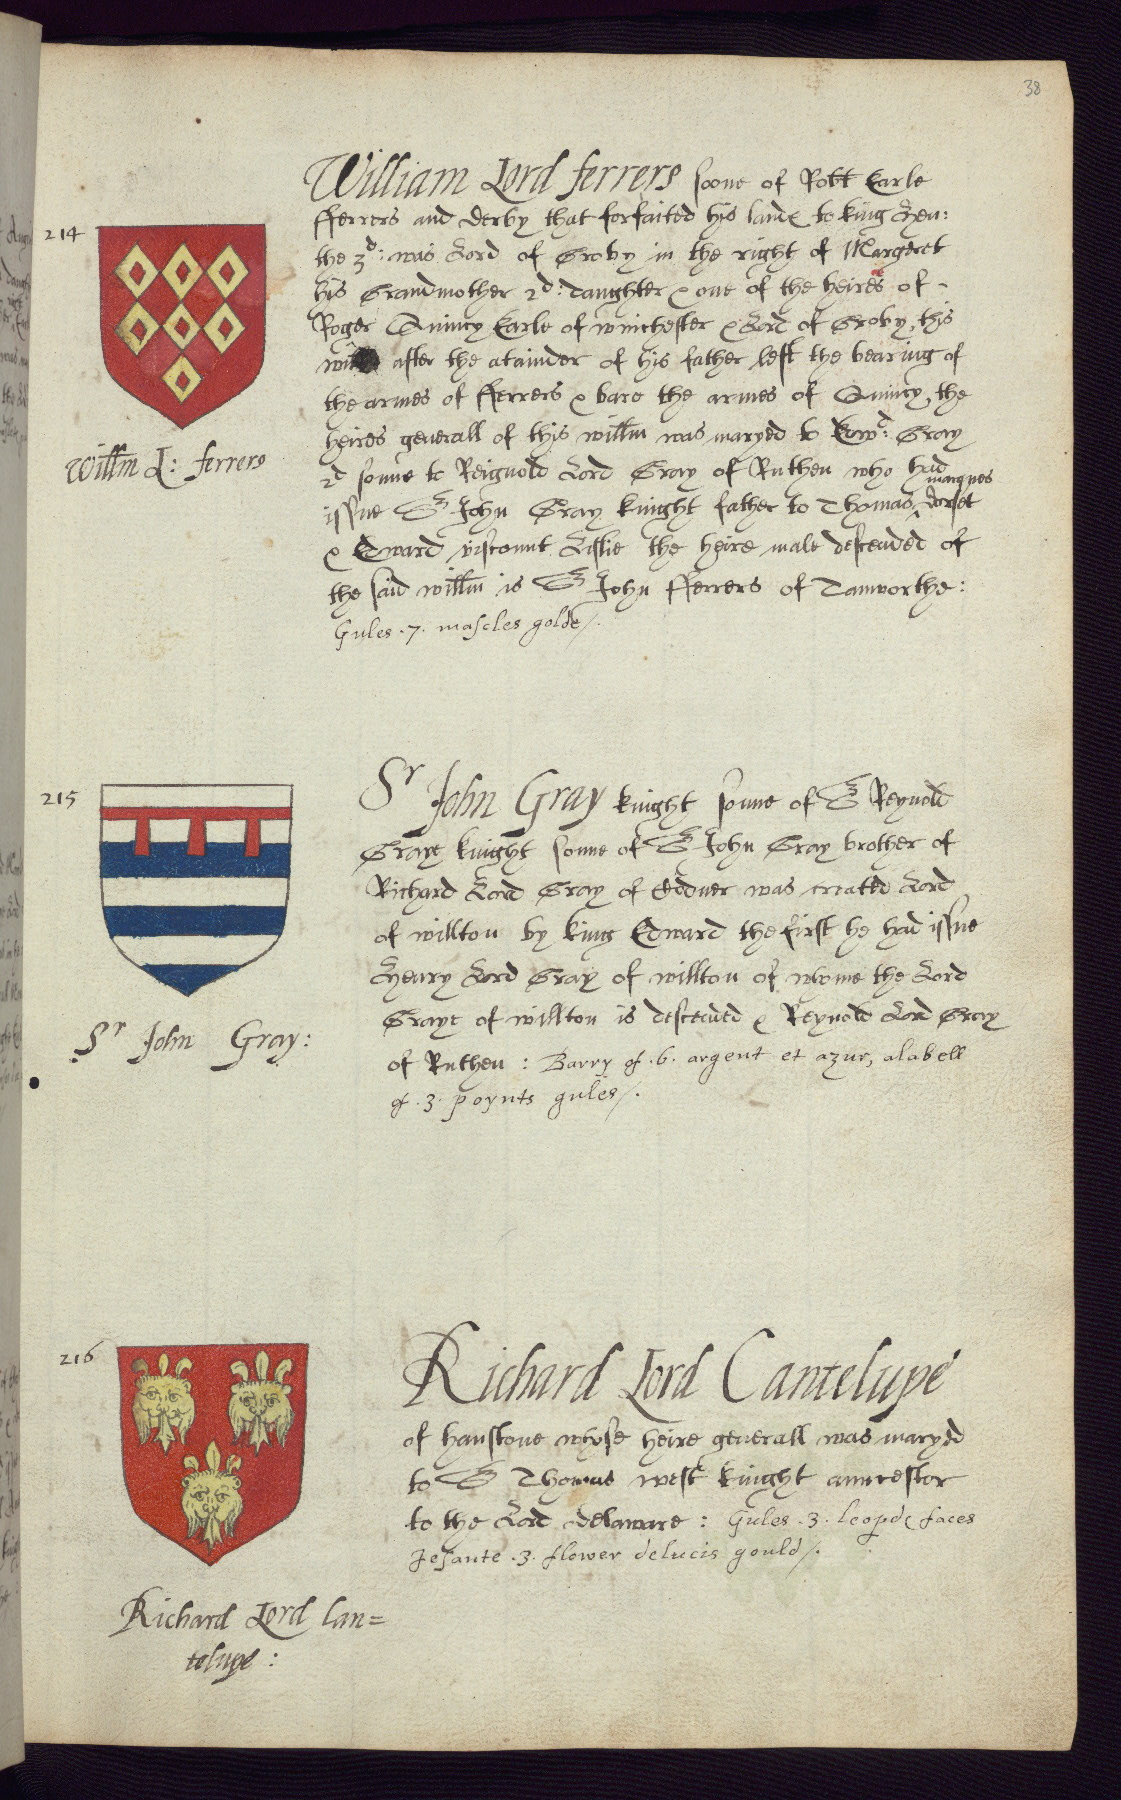 38
214
William Lord ferrers sone of Robt Earle
fferrers and Derby that forfaited his land to king Hen:
the 3d: was Lord of Groby in the right of Margeret
his Grandmother 2d: Daughter & one of the heires of -
Roger Quincy Earle of winchester & Lord of Groby, this
after the atainder of his father left the bearing of
the armes of fferrers & bare the armes of Quincy, the
heires generall of this willm was maryed to Edwd: Gray
2d sonne to Reignold Lord Gray of Ruthen who had
marques
issue Sr John Gray knight father to Thomas ^ dorset
& Edward viscount Lislie the heire male descended of
the said willm is Sr John fferrers of Tamworthe:
Gules .7. mascles golde/.
Willm L: ferrers
215
Sr John Gray knight sonne of Sr Reynold
Graye knight sonne of Sr John Gray brother of
Richard Lord Gray of Codner was created Lord
of willton by king Edward the first he had issue
Henry Lord Gray of willton of whome the Lord
Graye of willton is descended & Reynold Lord Gray
of Ruthen : Barry of .6. argent et azur, a labell
of .3. poynts gules/.
Sr John Gray:
216
Richard Lord Cantelupe
of hanstone whose heire generall was maryed
to Sr Thomas west knight auncestor
to the Lord Delaware : Gules .3. leopd faces
Jesante .3. flower delucis gould/.
Richard Lord Can=
telupe :